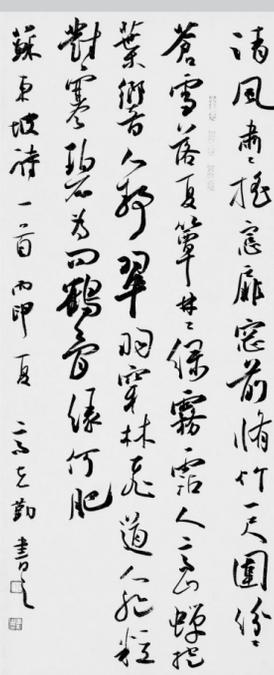 清風肅〻搖窗扉窗前脩竹一尺圍紛〻
蒼雪落夏簟冉〻綠霧霑人高山蟬抱
葉響人靜翠羽穿林飛道人絕粒
對寒碧為問鶴骨緣何肥
蘇東坡詩一首 丙申夏 高克勤書之